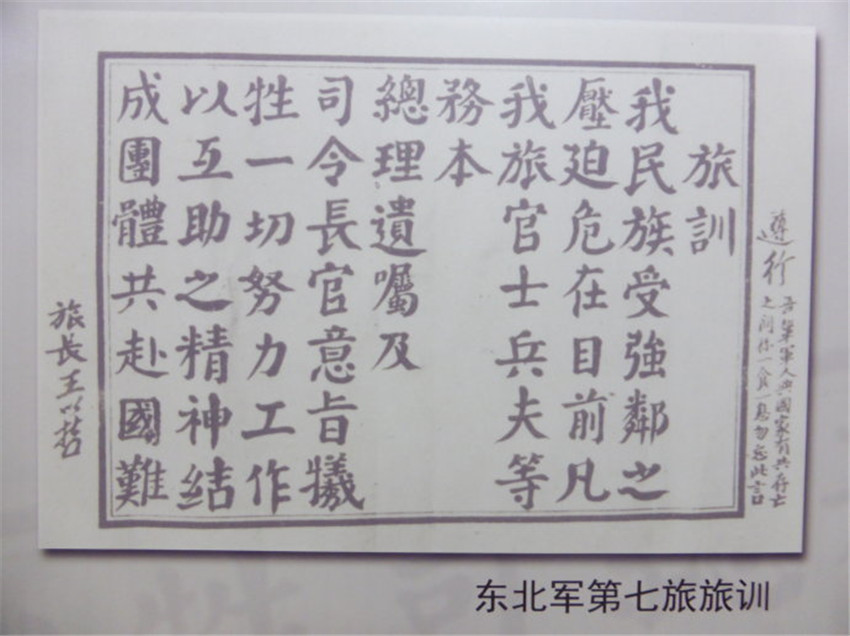 旅訓
我民族受強鄰之
壓迫危在目前凡
我旅官士兵夫等
務本
總理遺囑及
司令長官意旨犧
牲一切努力工作
以互助之精神結
成團體共赴國難
遵行
吾輩軍人與國家有共存亡
之同你一食一息勿忘此言
旅長王以哲
东北军第七旅旅训